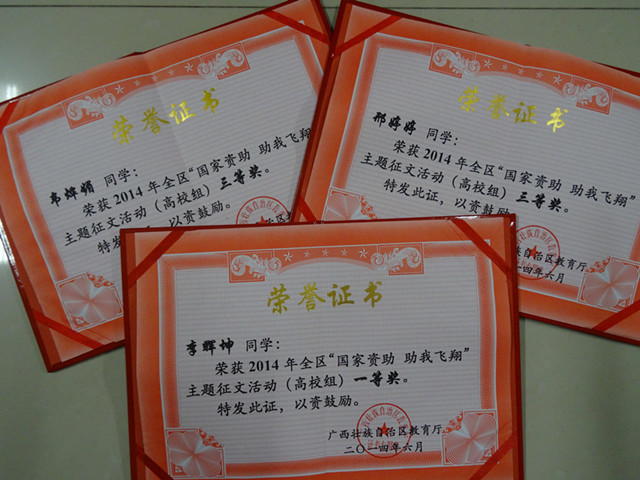 荣誉证书
韦烨娟 同学：
荣获2014年全区“国家资助 助我飞翔”
主题征文活动（高校组）三等奖。
特发此证，以资鼓励。
荣誉证书
邢婷婷 同学：
荣获2014年全区“国家资助 助我飞翔”
主题征文活动（高校组）三等奖。
特发此证，以资鼓励。
族自治区教育厅
一四年六月
荣誉证书
李辉坤 同学：
荣获2014年全区“国家资助 助我飞翔”
主题征文活动（高校组）一等奖。
特发此证，以资鼓励。
广西壮族自治区教育厅
二〇一四年六月